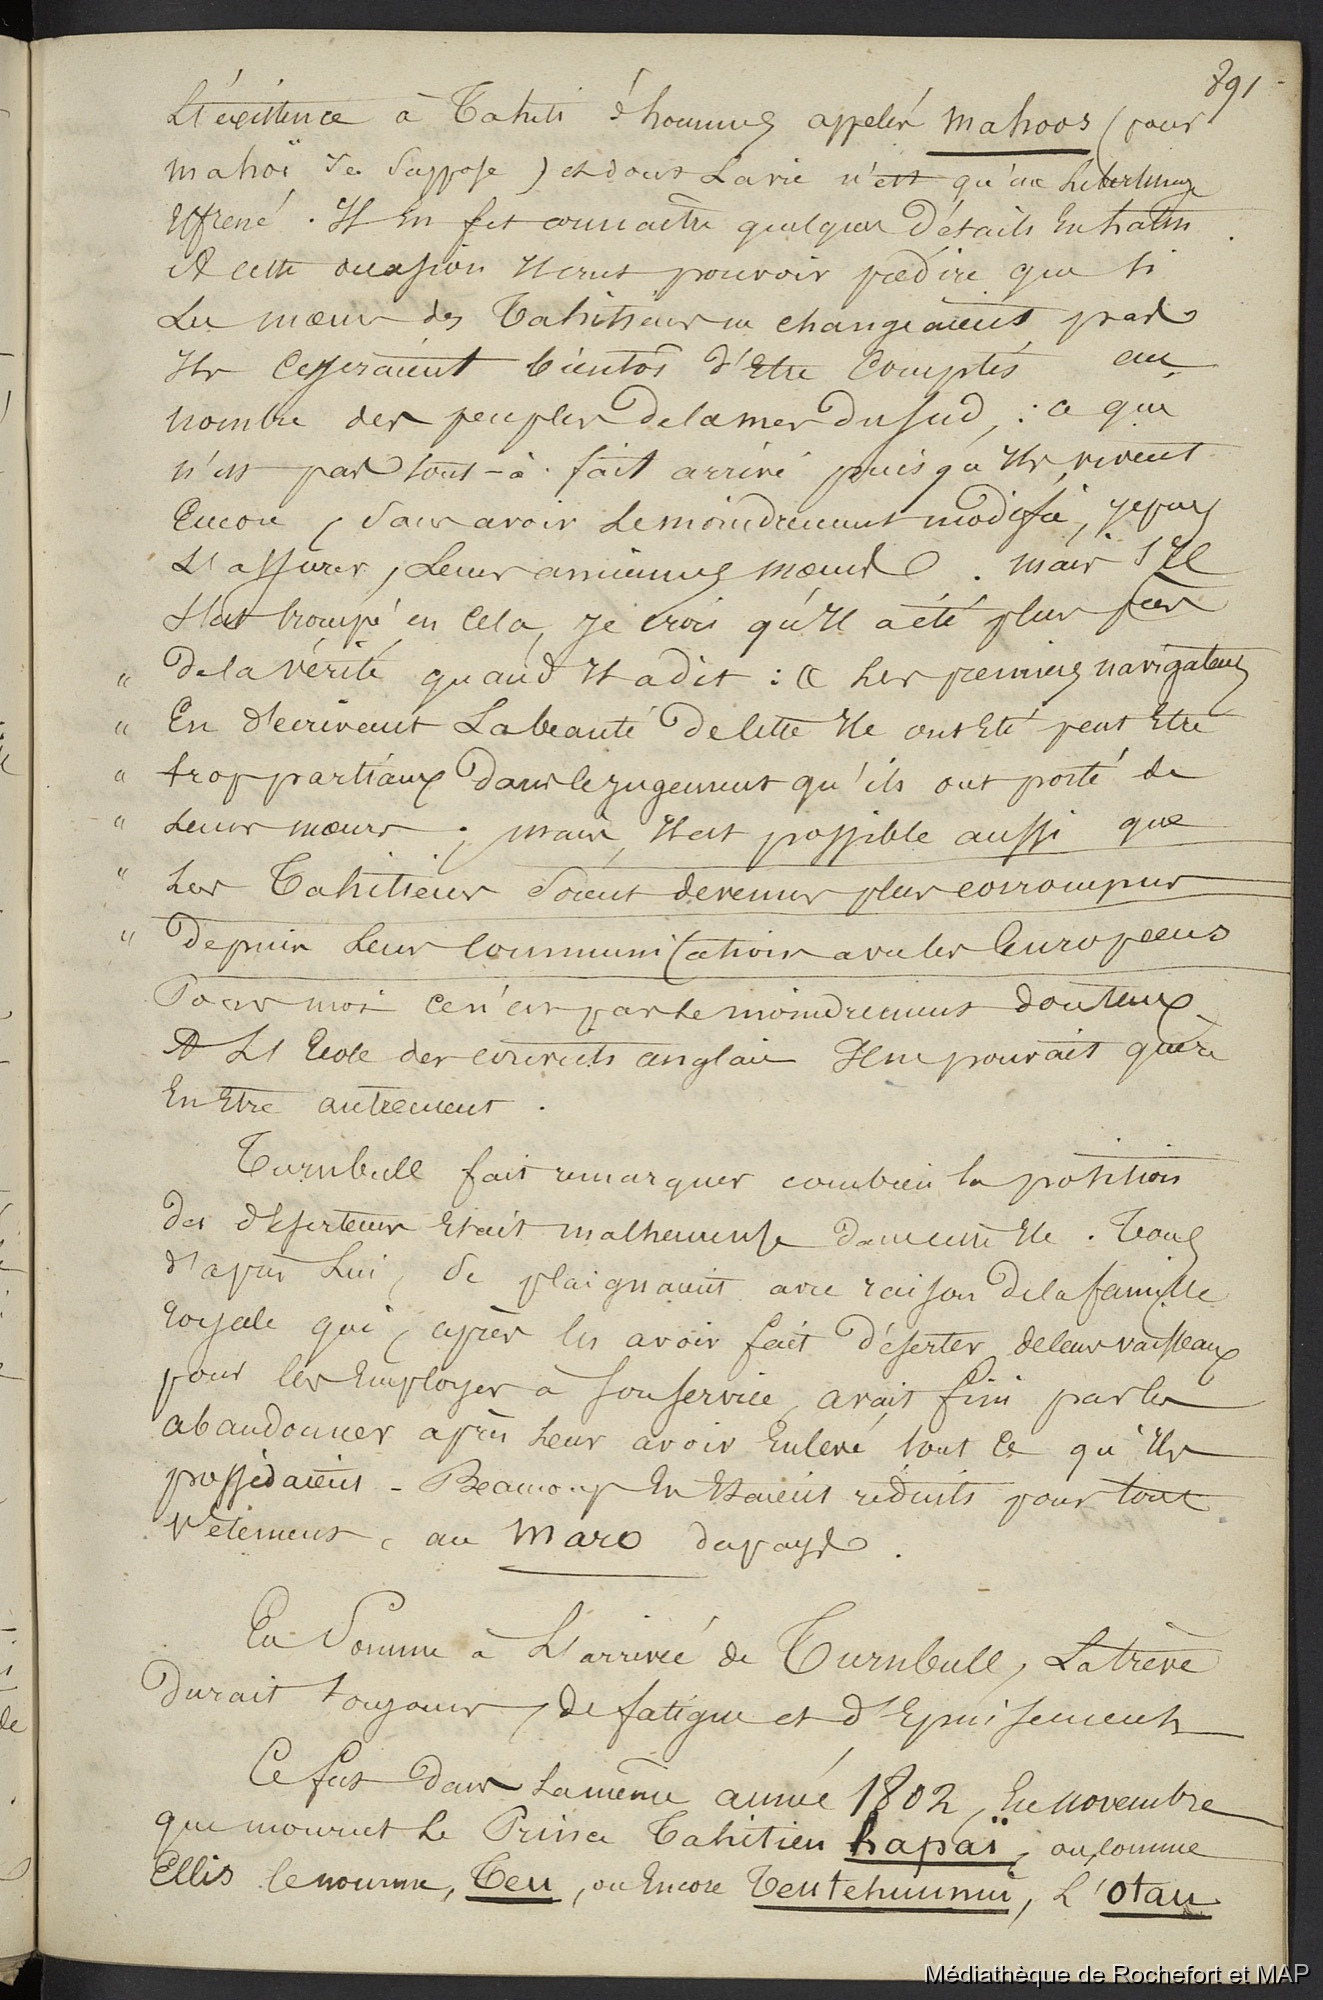 891
L'existence à Tahiti d'hommes appelés mahoos (pour
mahoï je suppose) et dont la vie n'est qu'un libertinage
effrené. Il en fit connaître quelques détails en latin.
A cette occasion il crut pouvoir prédire que si
les mœurs des Tahitiens ne changeaient pas
ils cesseraient bientôt d'être comptés au
nombre des peuples de la mer du sud, : ce qui
n'est pas tout-à-fait arrivé puisqu'ils vivent
encore, sans avoir le moindrement modifié, je puis
l'assurer, leurs anciennes mœurs. mais s'il
s'est trompé en cela, je crois qu'il a été plus près
" de la vérité quand il a dit : « Les premiers navigateurs
" En décrivant la beauté de cette île ont été peut être
" trop partiaux dans le jugement qu'ils ont porté de
" leurs mœurs ; mais, il est possible aussi que
" les Tahitiens soient devenus plus corrompus
" depuis leur communication avec les Européens
Pour moi ce n'est pas le moindrement douteux.
A l'école des convicts anglais il ne pouvait guère
en être autrement.
Turnbull fait remarquer combien la position
des déserteurs était malheureuse dans cette île. Tous,
d'après lui, se plaignaient avec raison de la famille
royale qui, après les avoir fait déserter de leurs vaisseaux
pour les employer à son service, avait fini par les
abandonner après leur avoir enlevé tout ce qu'ils
possédaient - Beaucoup en étaient réduits pour tout
vêtement, au maro du pays.
En somme à l'arrivée de Turnbull, la trève
durait toujours, de fatigue et d'épuisement
Ce fut dans la même année 1802, en novembre
que mourut le Prince Tahitien hapaï, ou, comme
Ellis le nomme, Teu, ou encore, L'otau